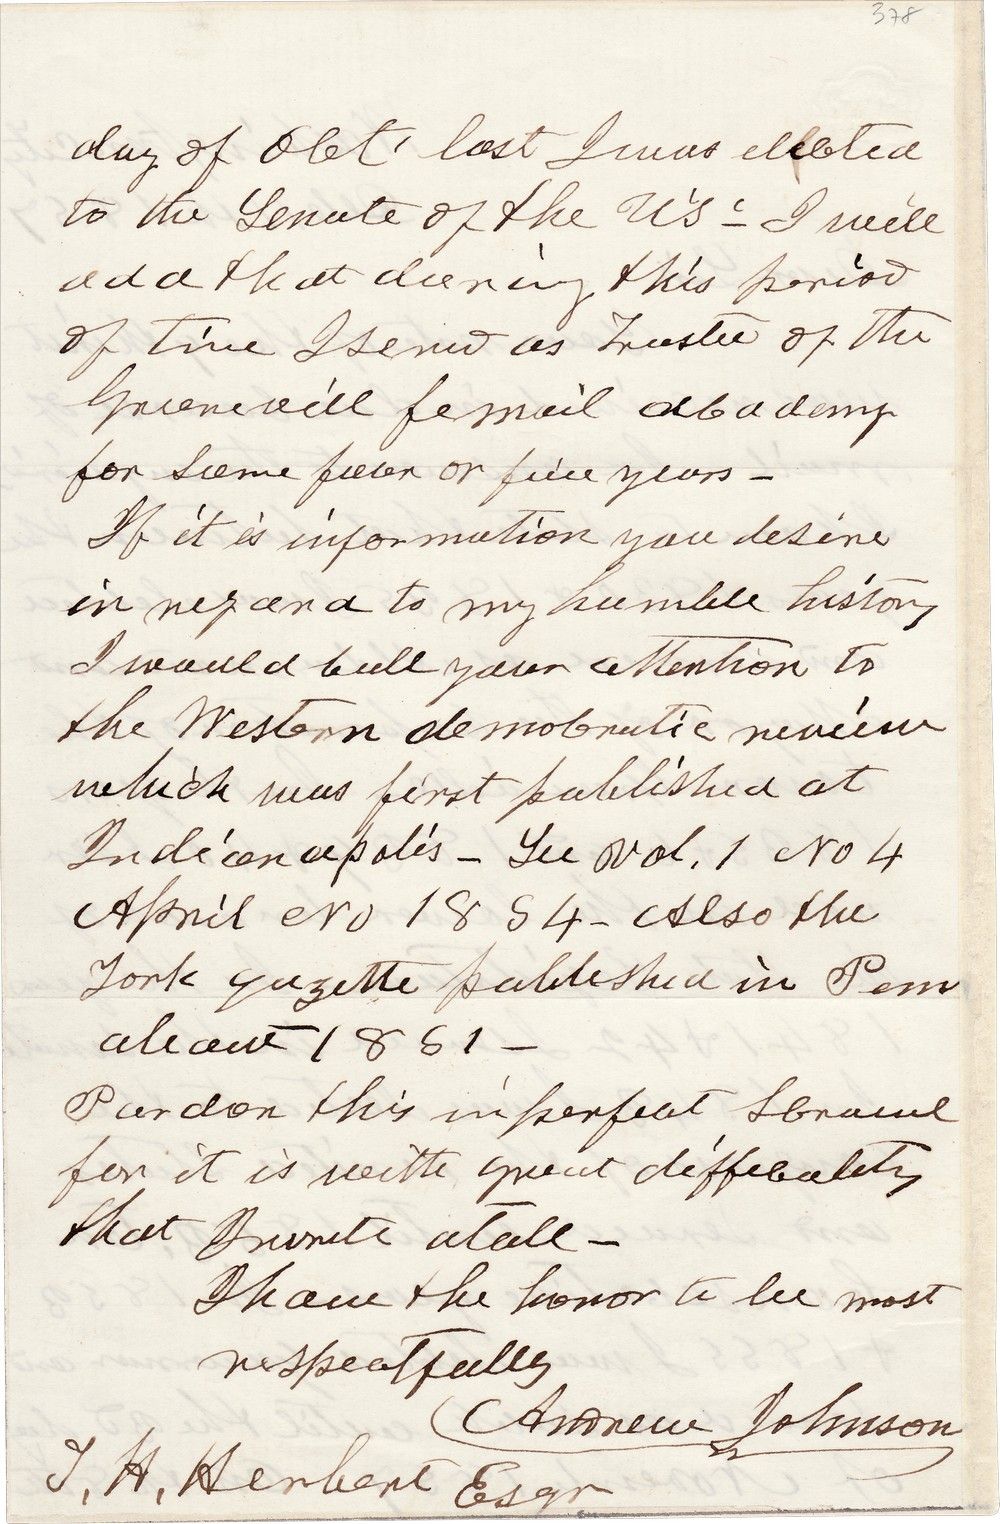 378
day of Oct' last I was elected
to the Senate of the U.S. - I will
add that during this period
of time I served as Trustee of the
Greenevill femail academy
for some four or five years -
If it is information you desire
in regard to my humble history
I would call your attention to
the Western democratic review
which was first published at
Indianapolis - See vol. 1 No 4
April No 1854 - Also the
York gazette published in Penn
about 1851 -
Pardon this imperfect scrawl
for it is with great difficulty
that I wrote atall -
I have the honor to be most
respectfully
Andrew Johnson
T. H. Herbert Esqr